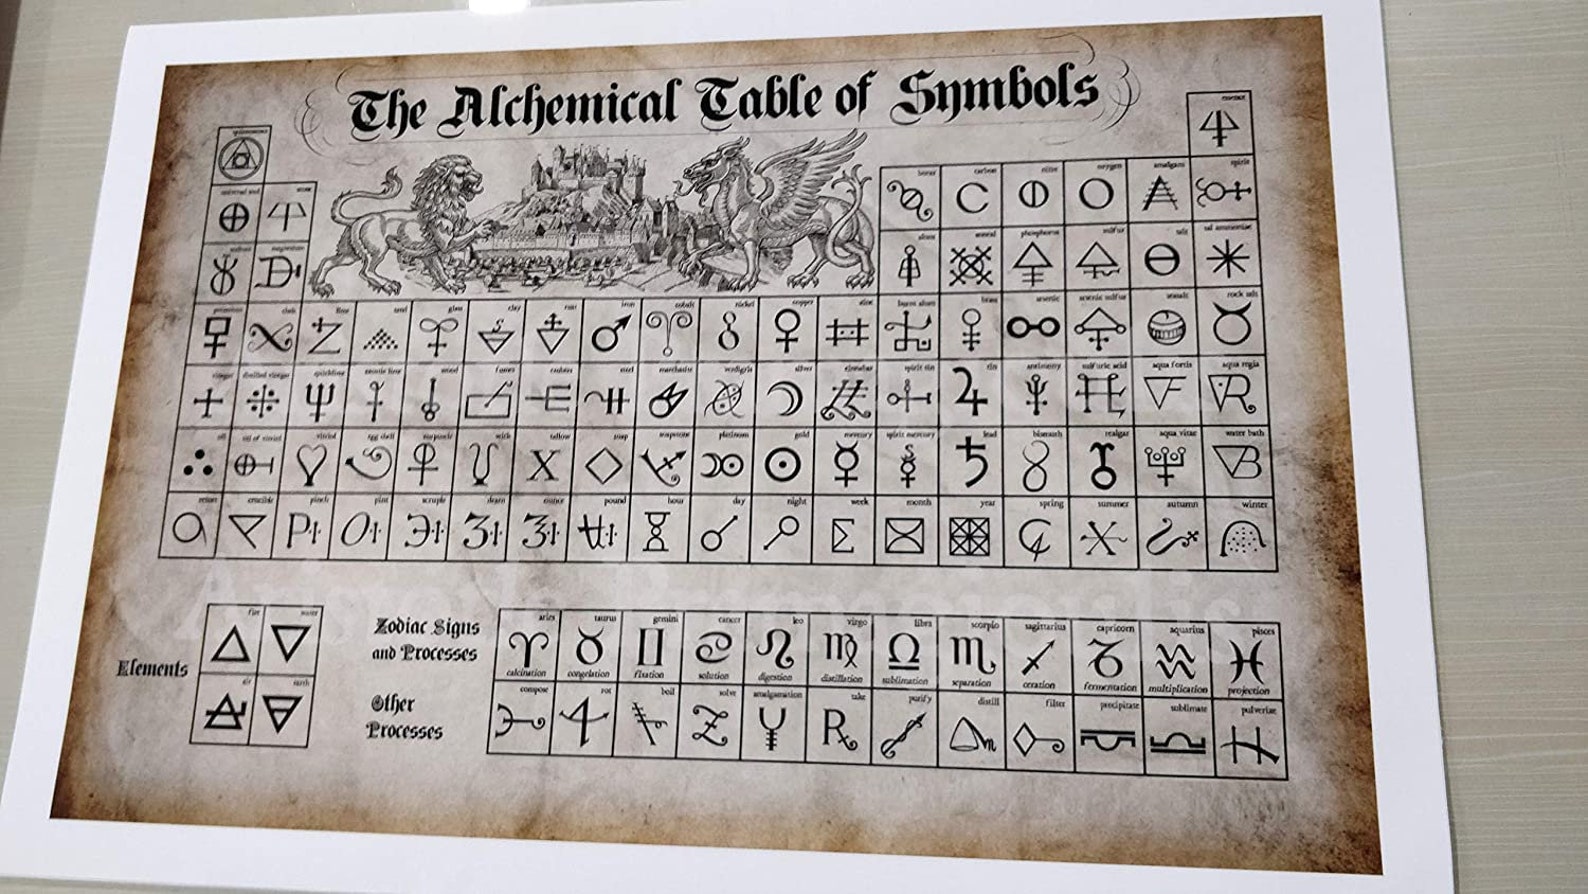 The Alchemical Table of Symbols
essence
borax carbon nitre oxygen amalgam spirit
alum phosphorus sulfur salt sal ammoniac
sand glass clay iron cobalt nickel copper zinc burnt alum brass arsenic arsenic sulfur rock salt
vinegar distilled vinegar quicklime caustic lime wood steel marchasite verdigris silver cinnabar spirit tin tin antimony sulfuric acid aqua fortis aqua regia
oil oil of vitriol vitriol egg shell wick tallow soap platinum gold mercury spirit mercury lead bismuth realgar aqua vitae water bath
retort crucible pinch pint scruple dram ounce pound hour day night week month year spring summer autumn winter
Elements
fire water
air earth
Zodiac Signs
and Processes
aries taurus gemini cancer leo virgo libra scorpio sagittarius capricorn aquarius pisces
calcination congelation fixation solution digestion distillation sublimation separation ceration fermentation multiplication projection
Other
Processes
compose rot boil solve amalgamation take purify distill filter precipitate sublimate pulverize